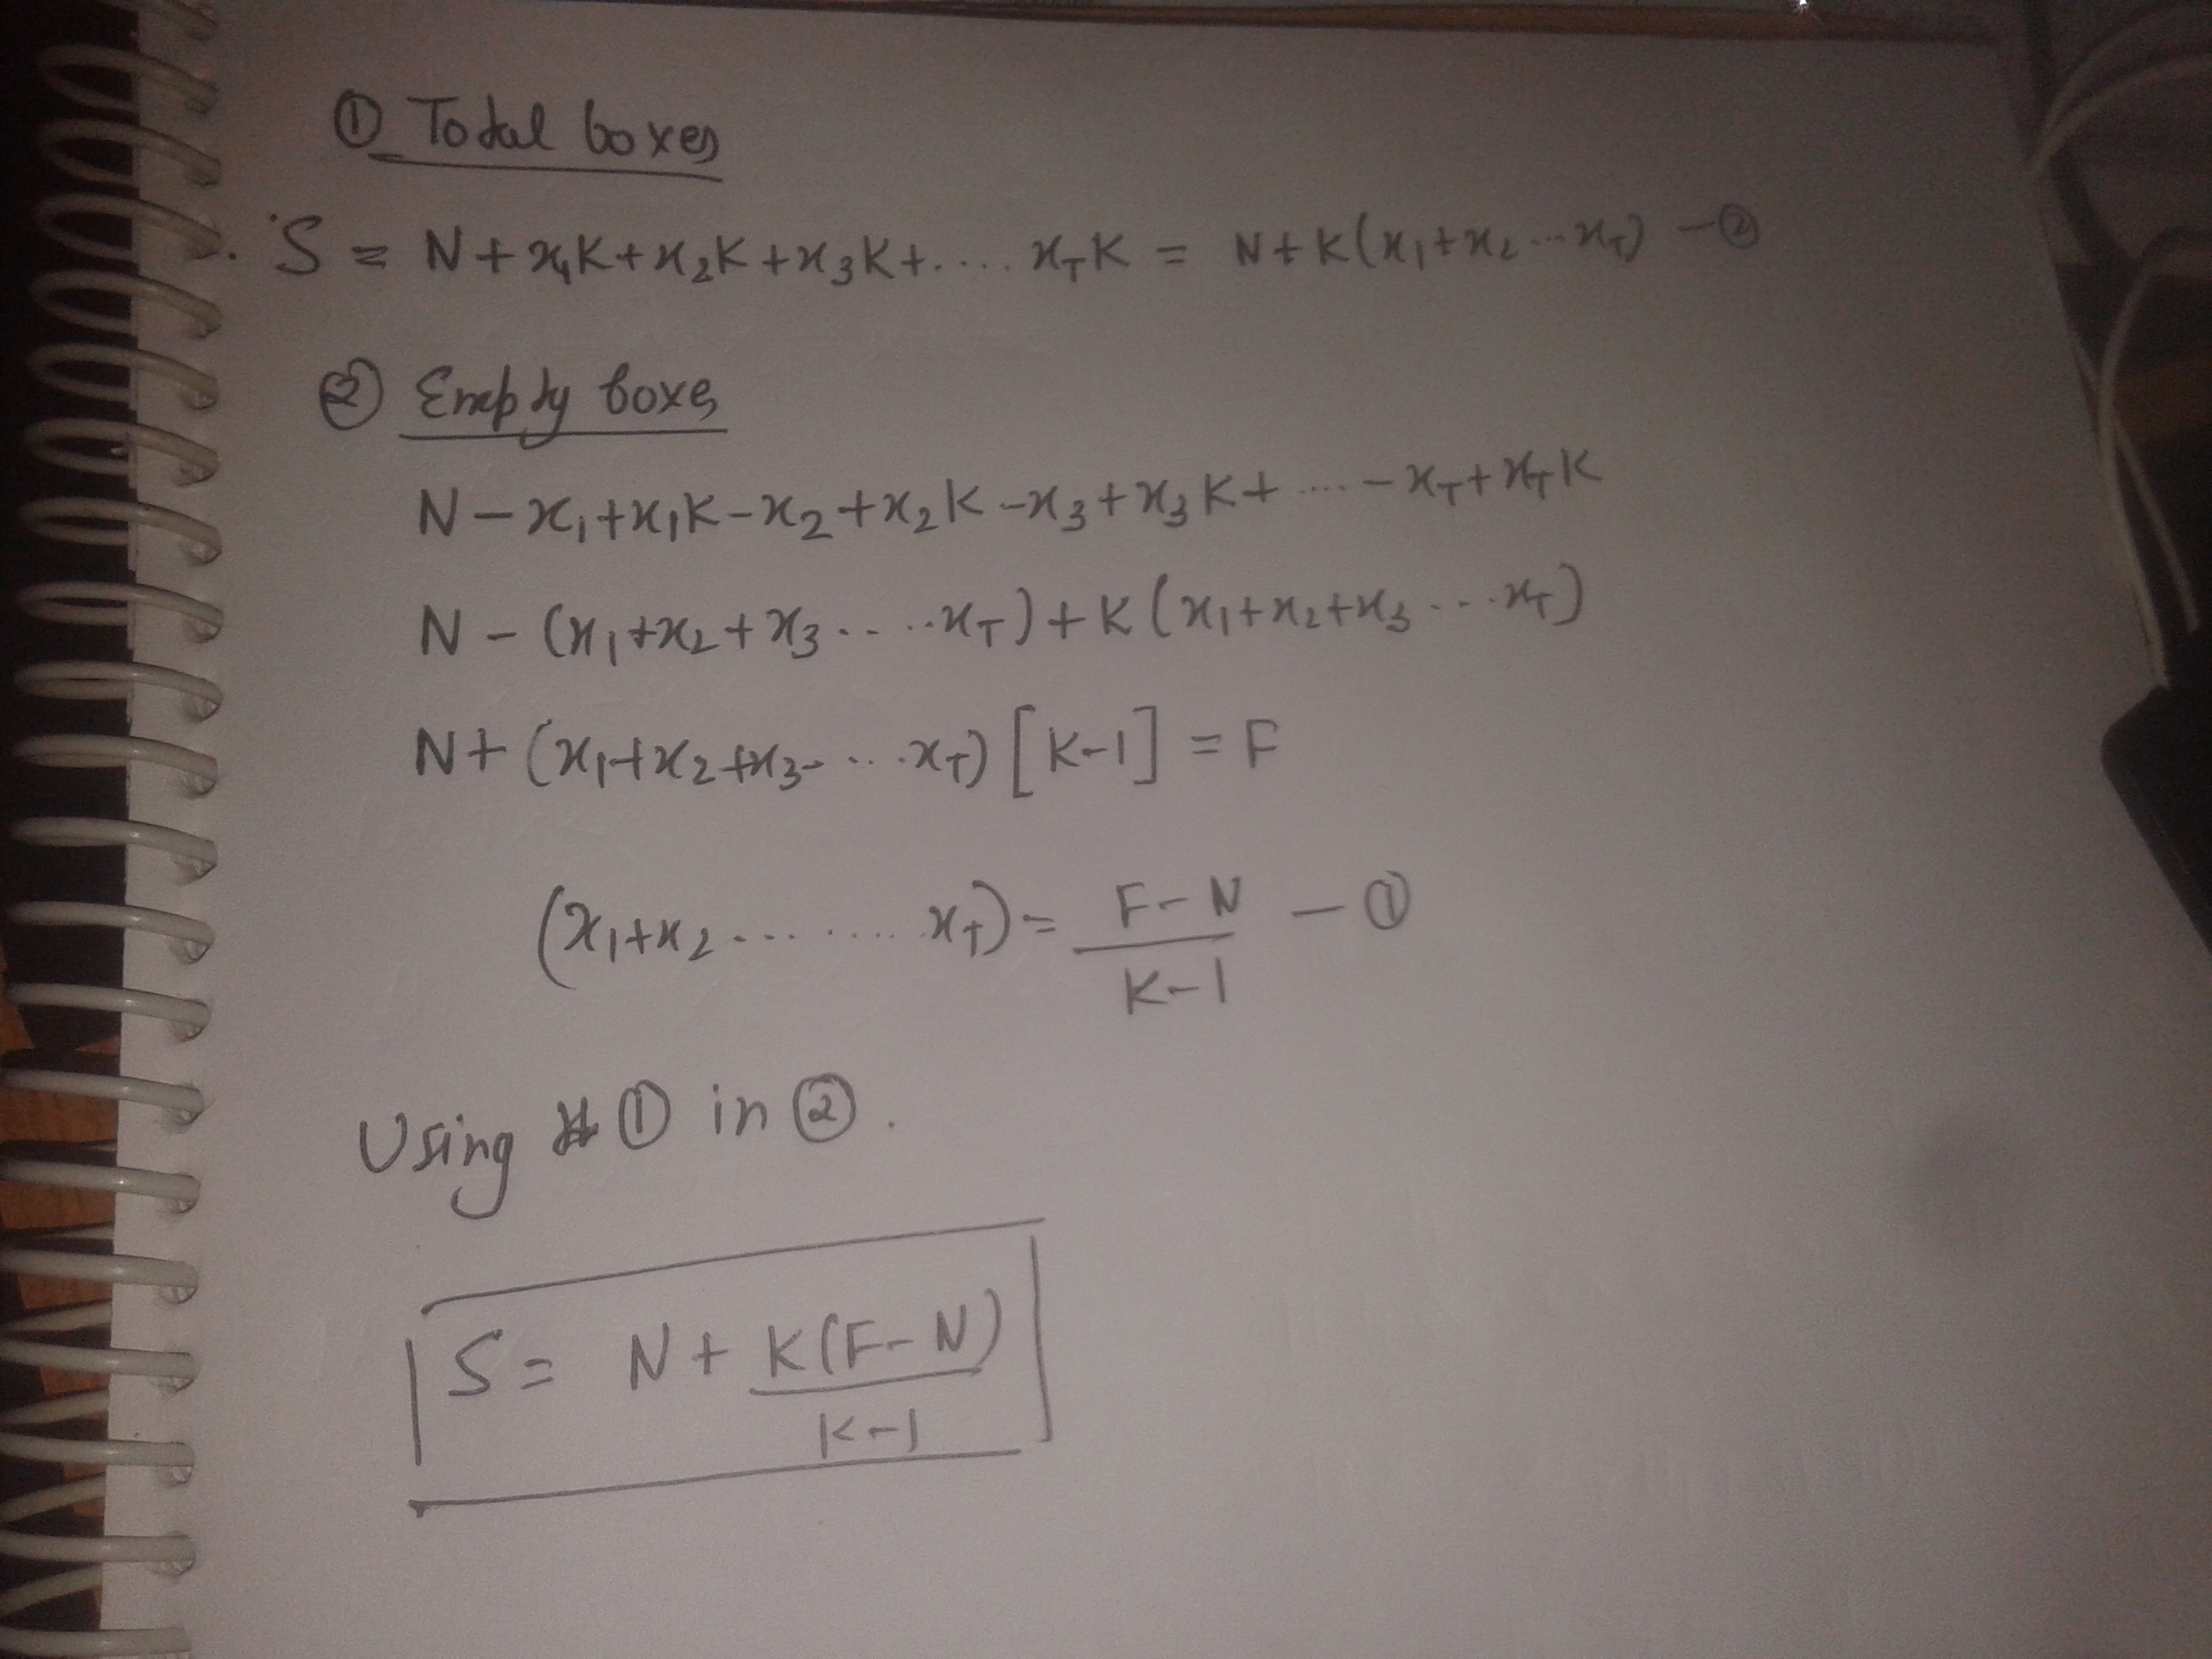 ① Total boxes
S = N + x₁K + x₂K + x₃K + .... x_T K = N + K(x₁ + x₂ ... x_T) — ②
② Empty boxes
N - x₁ + x₁K - x₂ + x₂K - x₃ + x₃K + .... - x_T + x_T K
N - (x₁ + x₂ + x₃ .. ... x_T) + K(x₁ + x₂ + x₃ ... .. x_T)
N + (x₁ + x₂ + x₃ - ... . x_T) [K-1] = F
(x₁ + x₂ ........ x_T) = \frac{F-N}{K-1} — ①
Using ① in ②.
S = N + \frac{K(F-N)}{K-1}